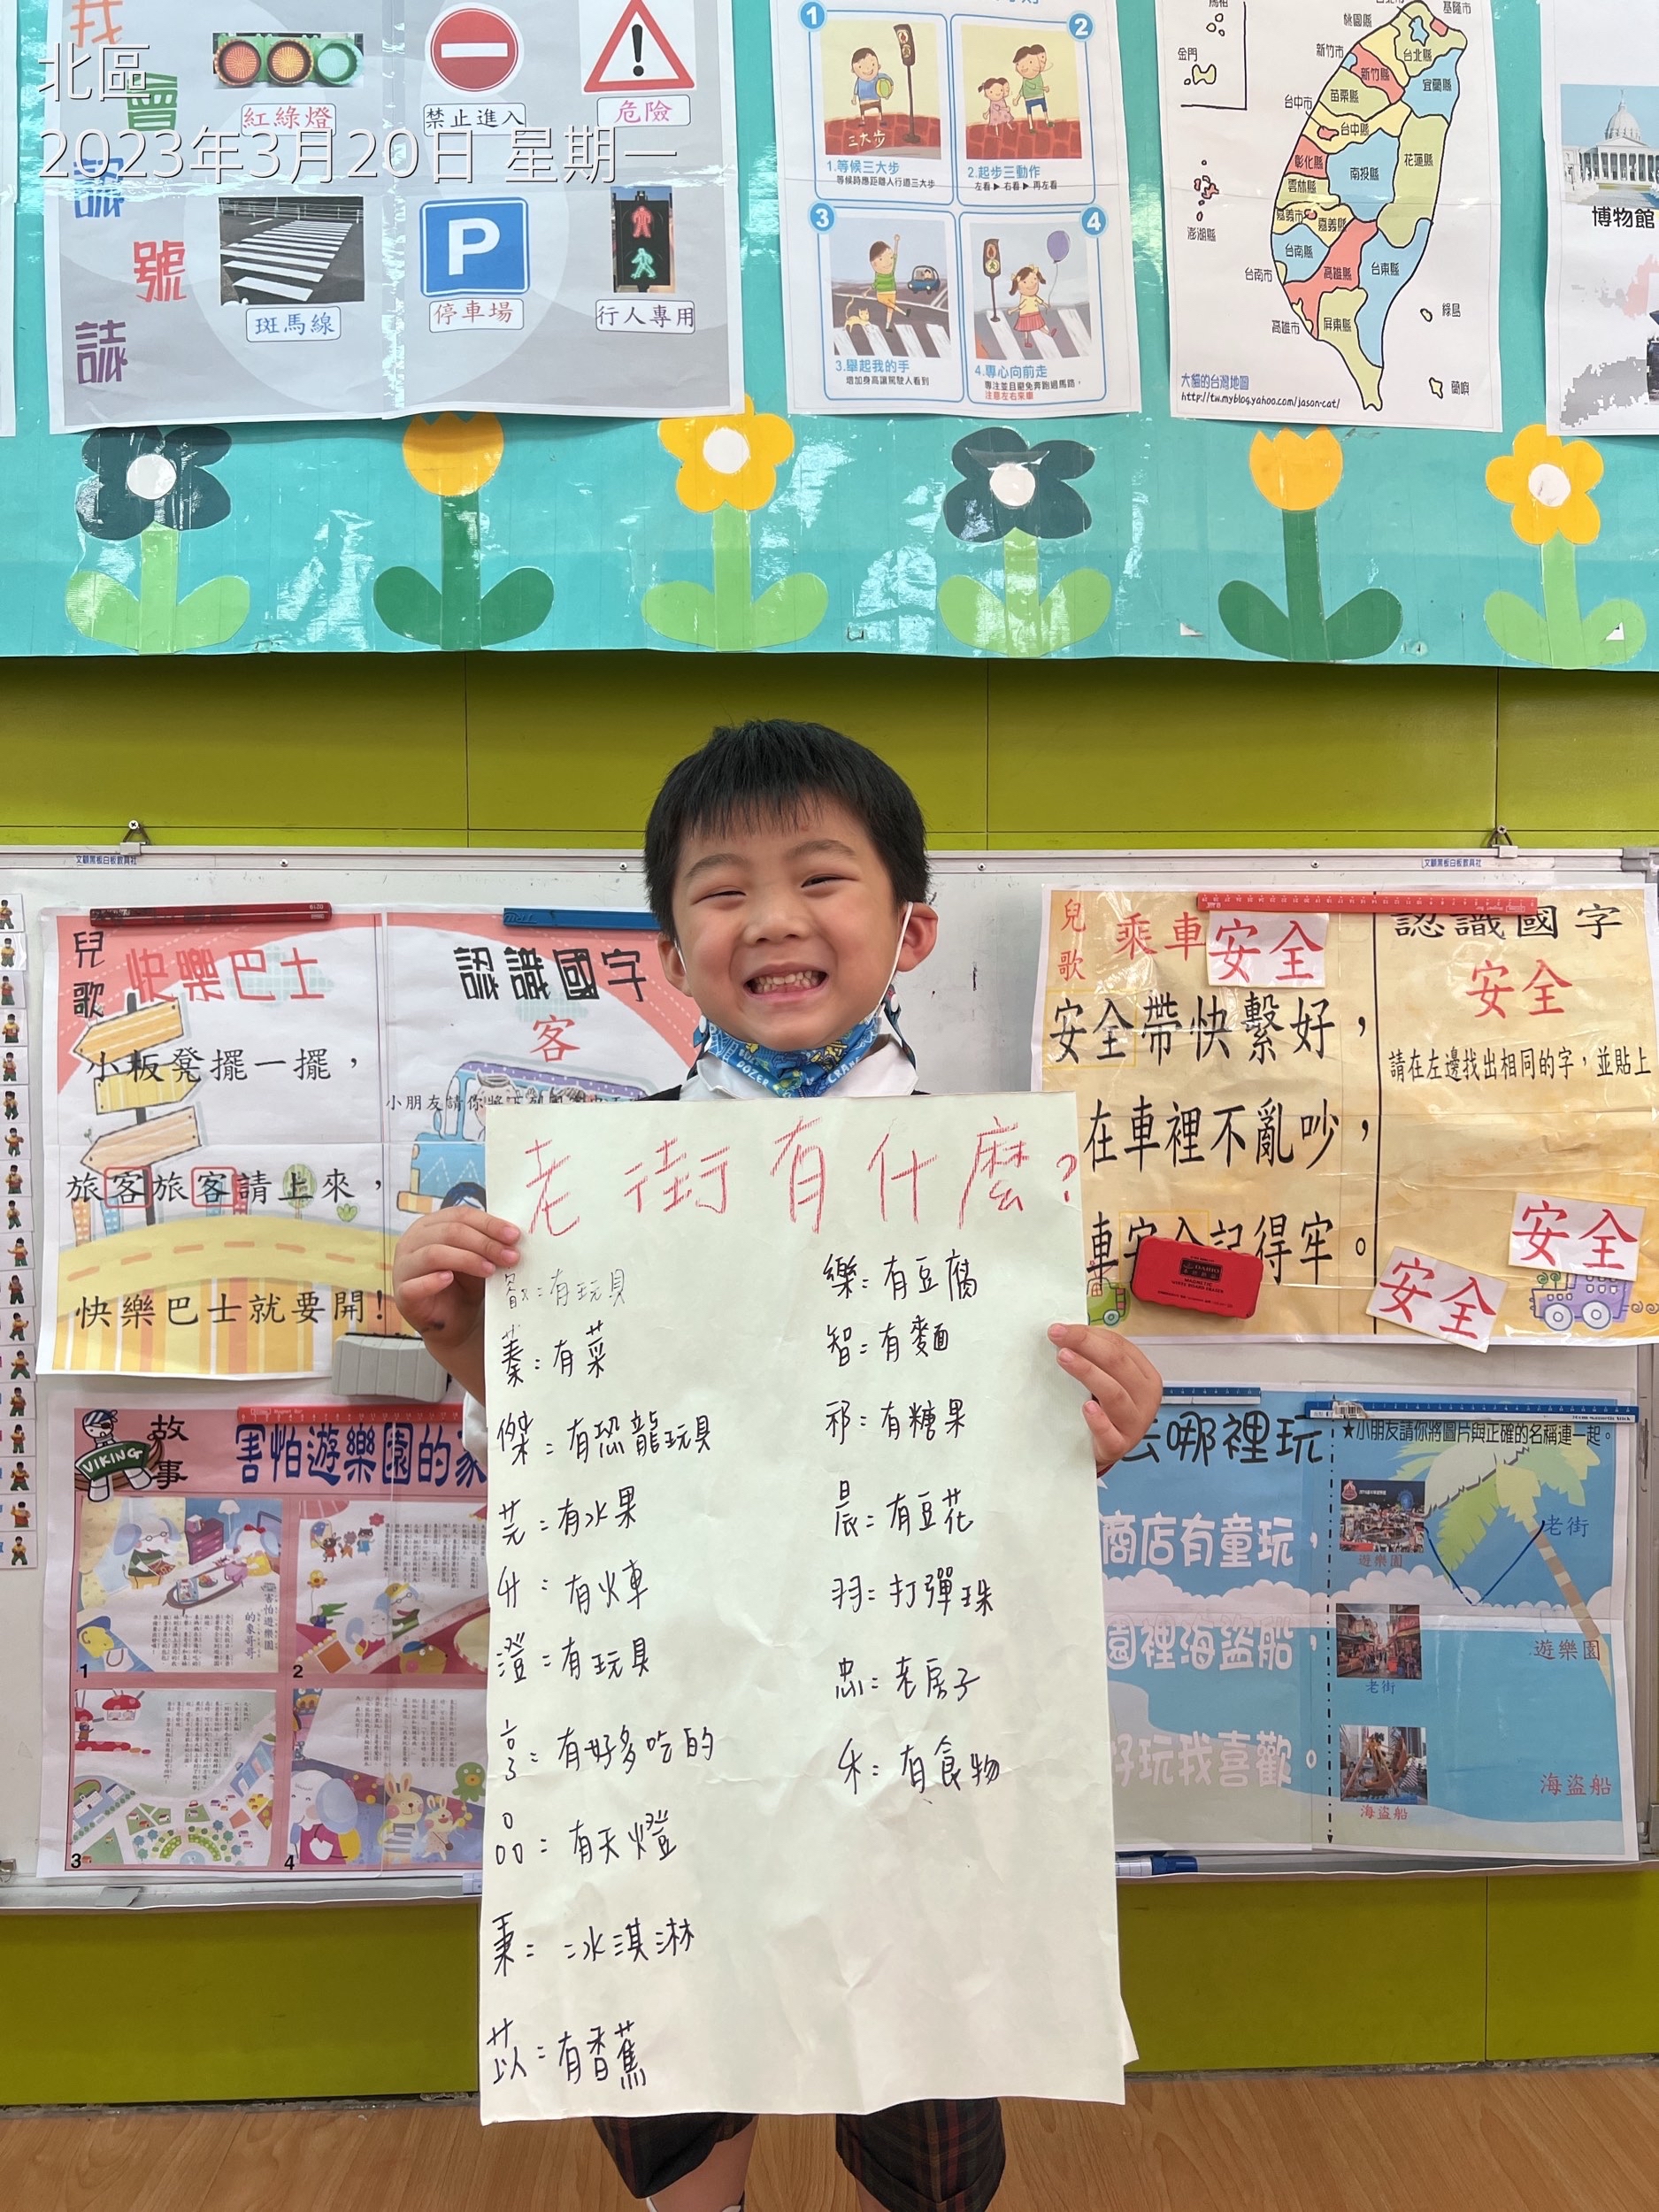 北區
2023年3月20日 星期一
我
會
認
號
誌
紅綠燈
禁止進入
危險
斑馬線
停車場
行人專用
1
三大步
1.等候三大步
等候時應距離人行道三大步
2
2.起步三動作
左看▶右看▶再左看
3
3.舉起我的手
增加身高讓駕駛人看到
4
4.專心向前走
專注並且避免奔跑過馬路，
注意左右來車
基隆市
桃園縣
台北縣
金門
新竹市
新竹縣
宜蘭縣
苗栗縣
台中市
台中縣
彰化縣
南投縣
花蓮縣
雲林縣
嘉義市
嘉義縣
澎湖縣
台南縣
台南市
高雄縣
台東縣
高雄市
屏東縣
綠島
蘭嶼
大貓的台灣地圖
http://tw.myblog.yahoo.com/jason-cat/
博物館
兒歌
快樂巴士
小板凳擺一擺，
旅客旅客請上來，
快樂巴士就要開!
認識國字
客
兒歌
乘車安全
安全帶快繫好，
在車裡不亂吵，
車安全記得牢。
認識國字
安全
請在左邊找出相同的字，並貼上
安全
安全
老街有什麼?
有玩具
蓁：有菜
傑：有恐龍玩具
芫：有水果
升：有火車
澄：有玩具
有好多吃的
品：有天燈
秉：冰淇淋
苡：有香蕉
樂：有豆腐
智：有麵
祁：有糖果
晨：有豆花
羽：打彈珠
忠：老房子
禾：有食物
VIKING
故事
害怕遊樂園的象
害怕遊樂園的象哥哥
1
2
3
4
去哪裡玩
商店有童玩，
園裡海盜船，
好玩我喜歡。
★小朋友請你將圖片與正確的名稱連一起。
遊樂園
老街
老街
遊樂園
海盜船
海盜船